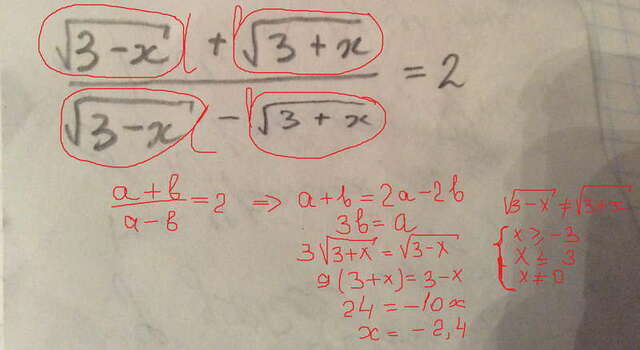 (√(3-x) + √(3+x)) / (√(3-x) - √(3+x)) = 2
(a+b)/(a-b) = 2 ⇒ a+b = 2a-2b
3b = a
3√(3+x) = √(3-x)
9(3+x) = 3-x
24 = -10x
x = -2,4
√(3-x) ≠ √(3+x)
{ x ≥ -3
x ≤ 3
x ≠ 0